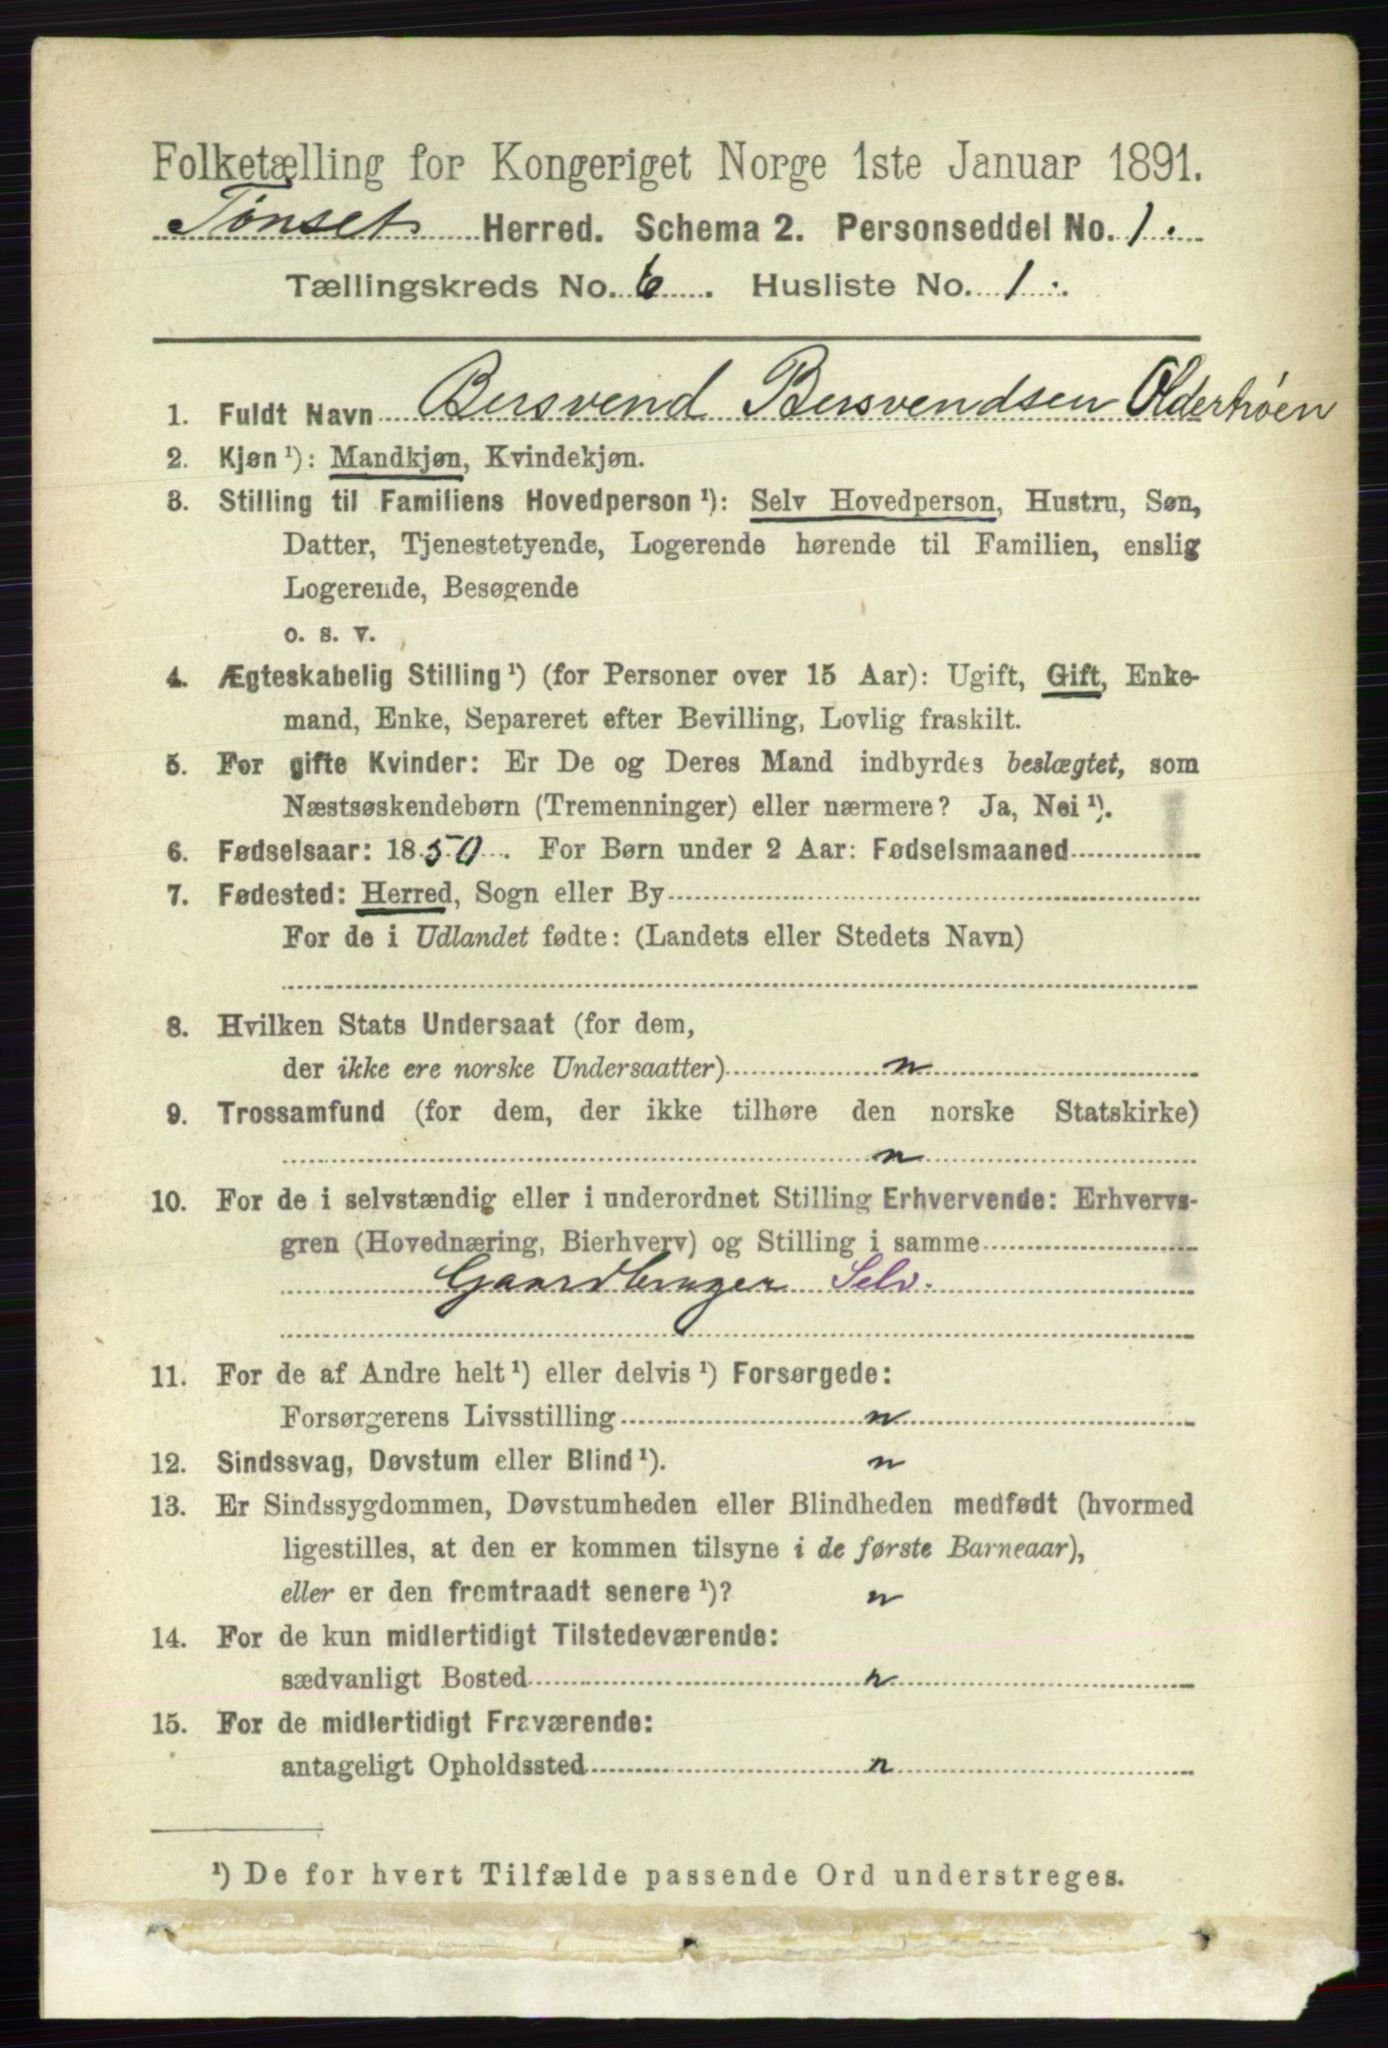 Folketælling for Kongeriget Norge 1ste Januar 1891.
Tønset Herred. Schema 2. Personseddel No. 1.
Tællingskreds No. 6. Husliste No. 1.
1. Fuldt Navn Bersvend Bersvendsen Oldertrøen
2. Kjøn ¹): Mandkjøn, Kvindekjøn.
3. Stilling til Familiens Hovedperson ¹): Selv Hovedperson, Hustru, Søn,
Datter, Tjenestetyende, Logerende hørende til Familien, enslig
Logerende, Besøgende
o. s. v.
4. Ægteskabelig Stilling ¹) (for Personer over 15 Aar): Ugift, Gift, Enke-
mand, Enke, Separeret efter Bevilling, Lovlig fraskilt.
5. For gifte Kvinder: Er De og Deres Mand indbyrdes beslægtet, som
Næstsøskendebørn (Tremenninger) eller nærmere? Ja, Nei ¹).
6. Fødselsaar: 1850. For Børn under 2 Aar: Fødselsmaaned
7. Fødested: Herred, Sogn eller By
For de i Udlandet fødte: (Landets eller Stedets Navn)
8. Hvilken Stats Undersaat (for dem,
der ikke ere norske Undersaatter) n
9. Trossamfund (for dem, der ikke tilhøre den norske Statskirke)
n
10. For de i selvstændig eller i underordnet Stilling Erhvervende: Erhvervs-
gren (Hovednæring, Bierhverv) og Stilling i samme
Gaardbruger Selv.
11. For de af Andre helt ¹) eller delvis ¹) Forsørgede:
Forsørgerens Livsstilling n
12. Sindssvag, Døvstum eller Blind ¹). n
13. Er Sindssygdommen, Døvstumheden eller Blindheden medfødt (hvormed
ligestilles, at den er kommen tilsyne i de første Barneaar),
eller er den fremtraadt senere ¹)? n
14. For de kun midlertidigt Tilstedeværende:
sædvanligt Bosted n
15. For de midlertidigt Fraværende:
antageligt Opholdssted n
¹) De for hvert Tilfælde passende Ord understreges.